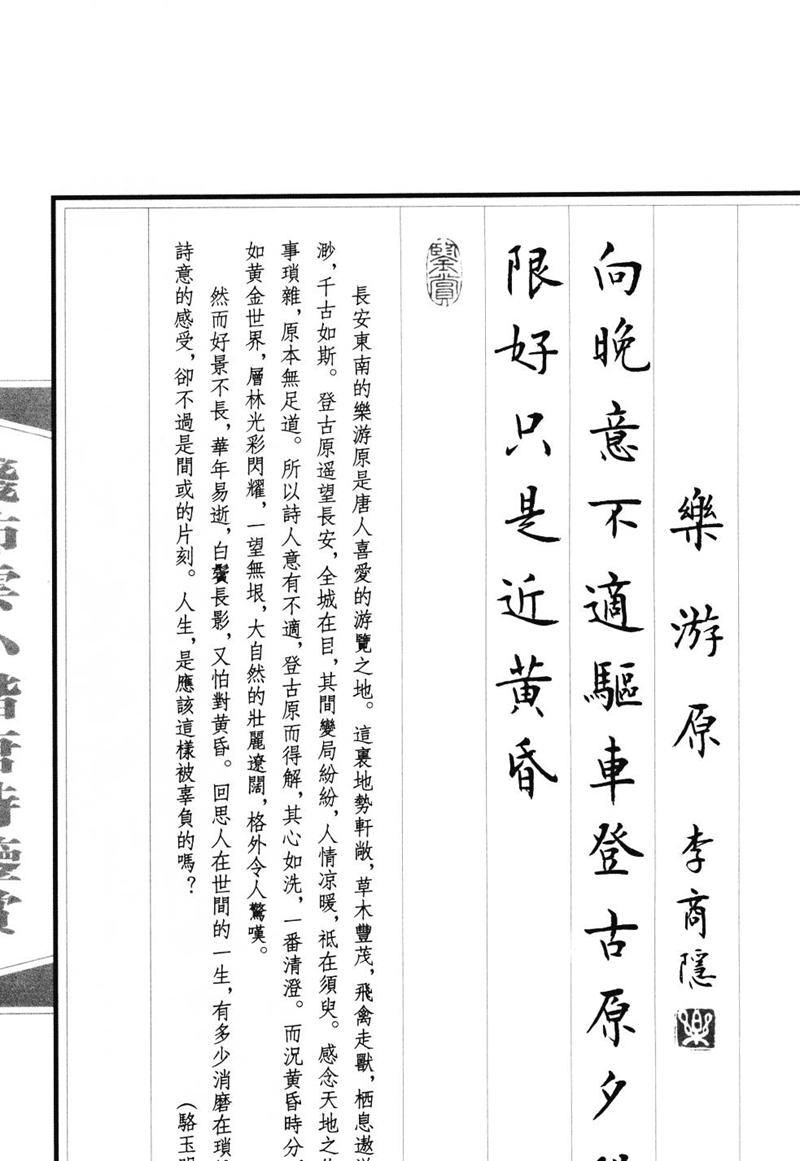 樂游原 李商隱
向晚意不適驅車登古原夕
限好只是近黃昏
鑒賞
長安東南的樂游原是唐人喜愛的游覽之地。這裏地勢軒敞，草木豐茂，飛禽走獸，栖息遨
渺，千古如斯。登古原遥望長安，全城在目，其間變局紛紛，人情凉暖，祇在須臾。感念天地之
事瑣雜，原本無足道。所以詩人意有不適，登古原而得解，其心如洗，一番清澄。而況黄昏時分
如黄金世界，層林光彩閃耀，一望無垠，大自然的壯麗遼闊，格外令人驚嘆。
然而好景不長，華年易逝，白鬢長影，又怕對黄昏。回思人在世間的一生，有多少消磨在瑣
詩意的感受，卻不過是間或的片刻。人生，是應該這樣被辜負的嗎？
（駱玉
小楷唐詩鑒賞